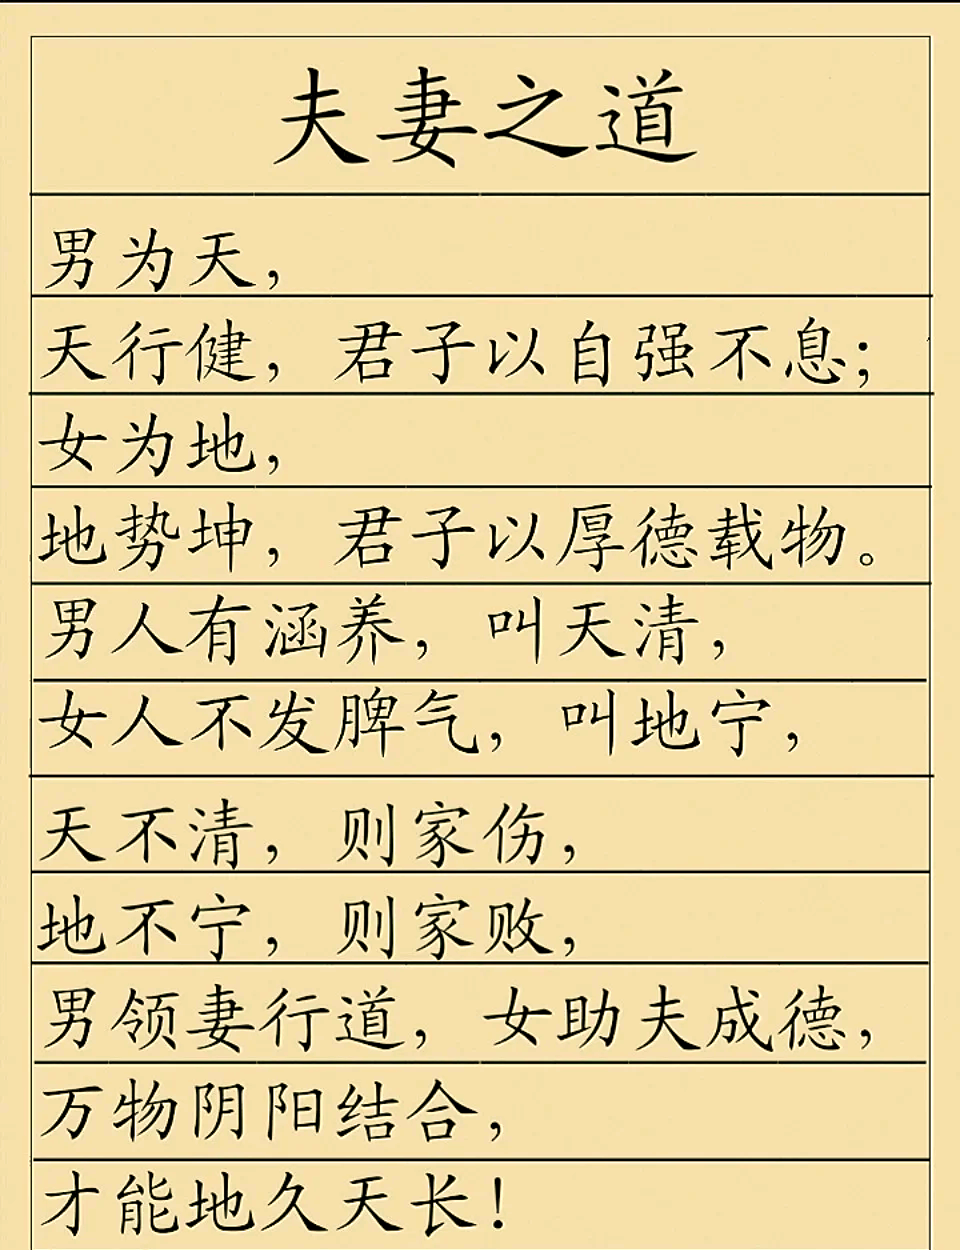 夫妻之道
男为天，
天行健，君子以自强不息；
女为地，
地势坤，君子以厚德载物。
男人有涵养，叫天清，
女人不发脾气，叫地宁，
天不清，则家伤，
地不宁，则家败，
男领妻行道，女助夫成德，
万物阴阳结合，
才能地久天长！